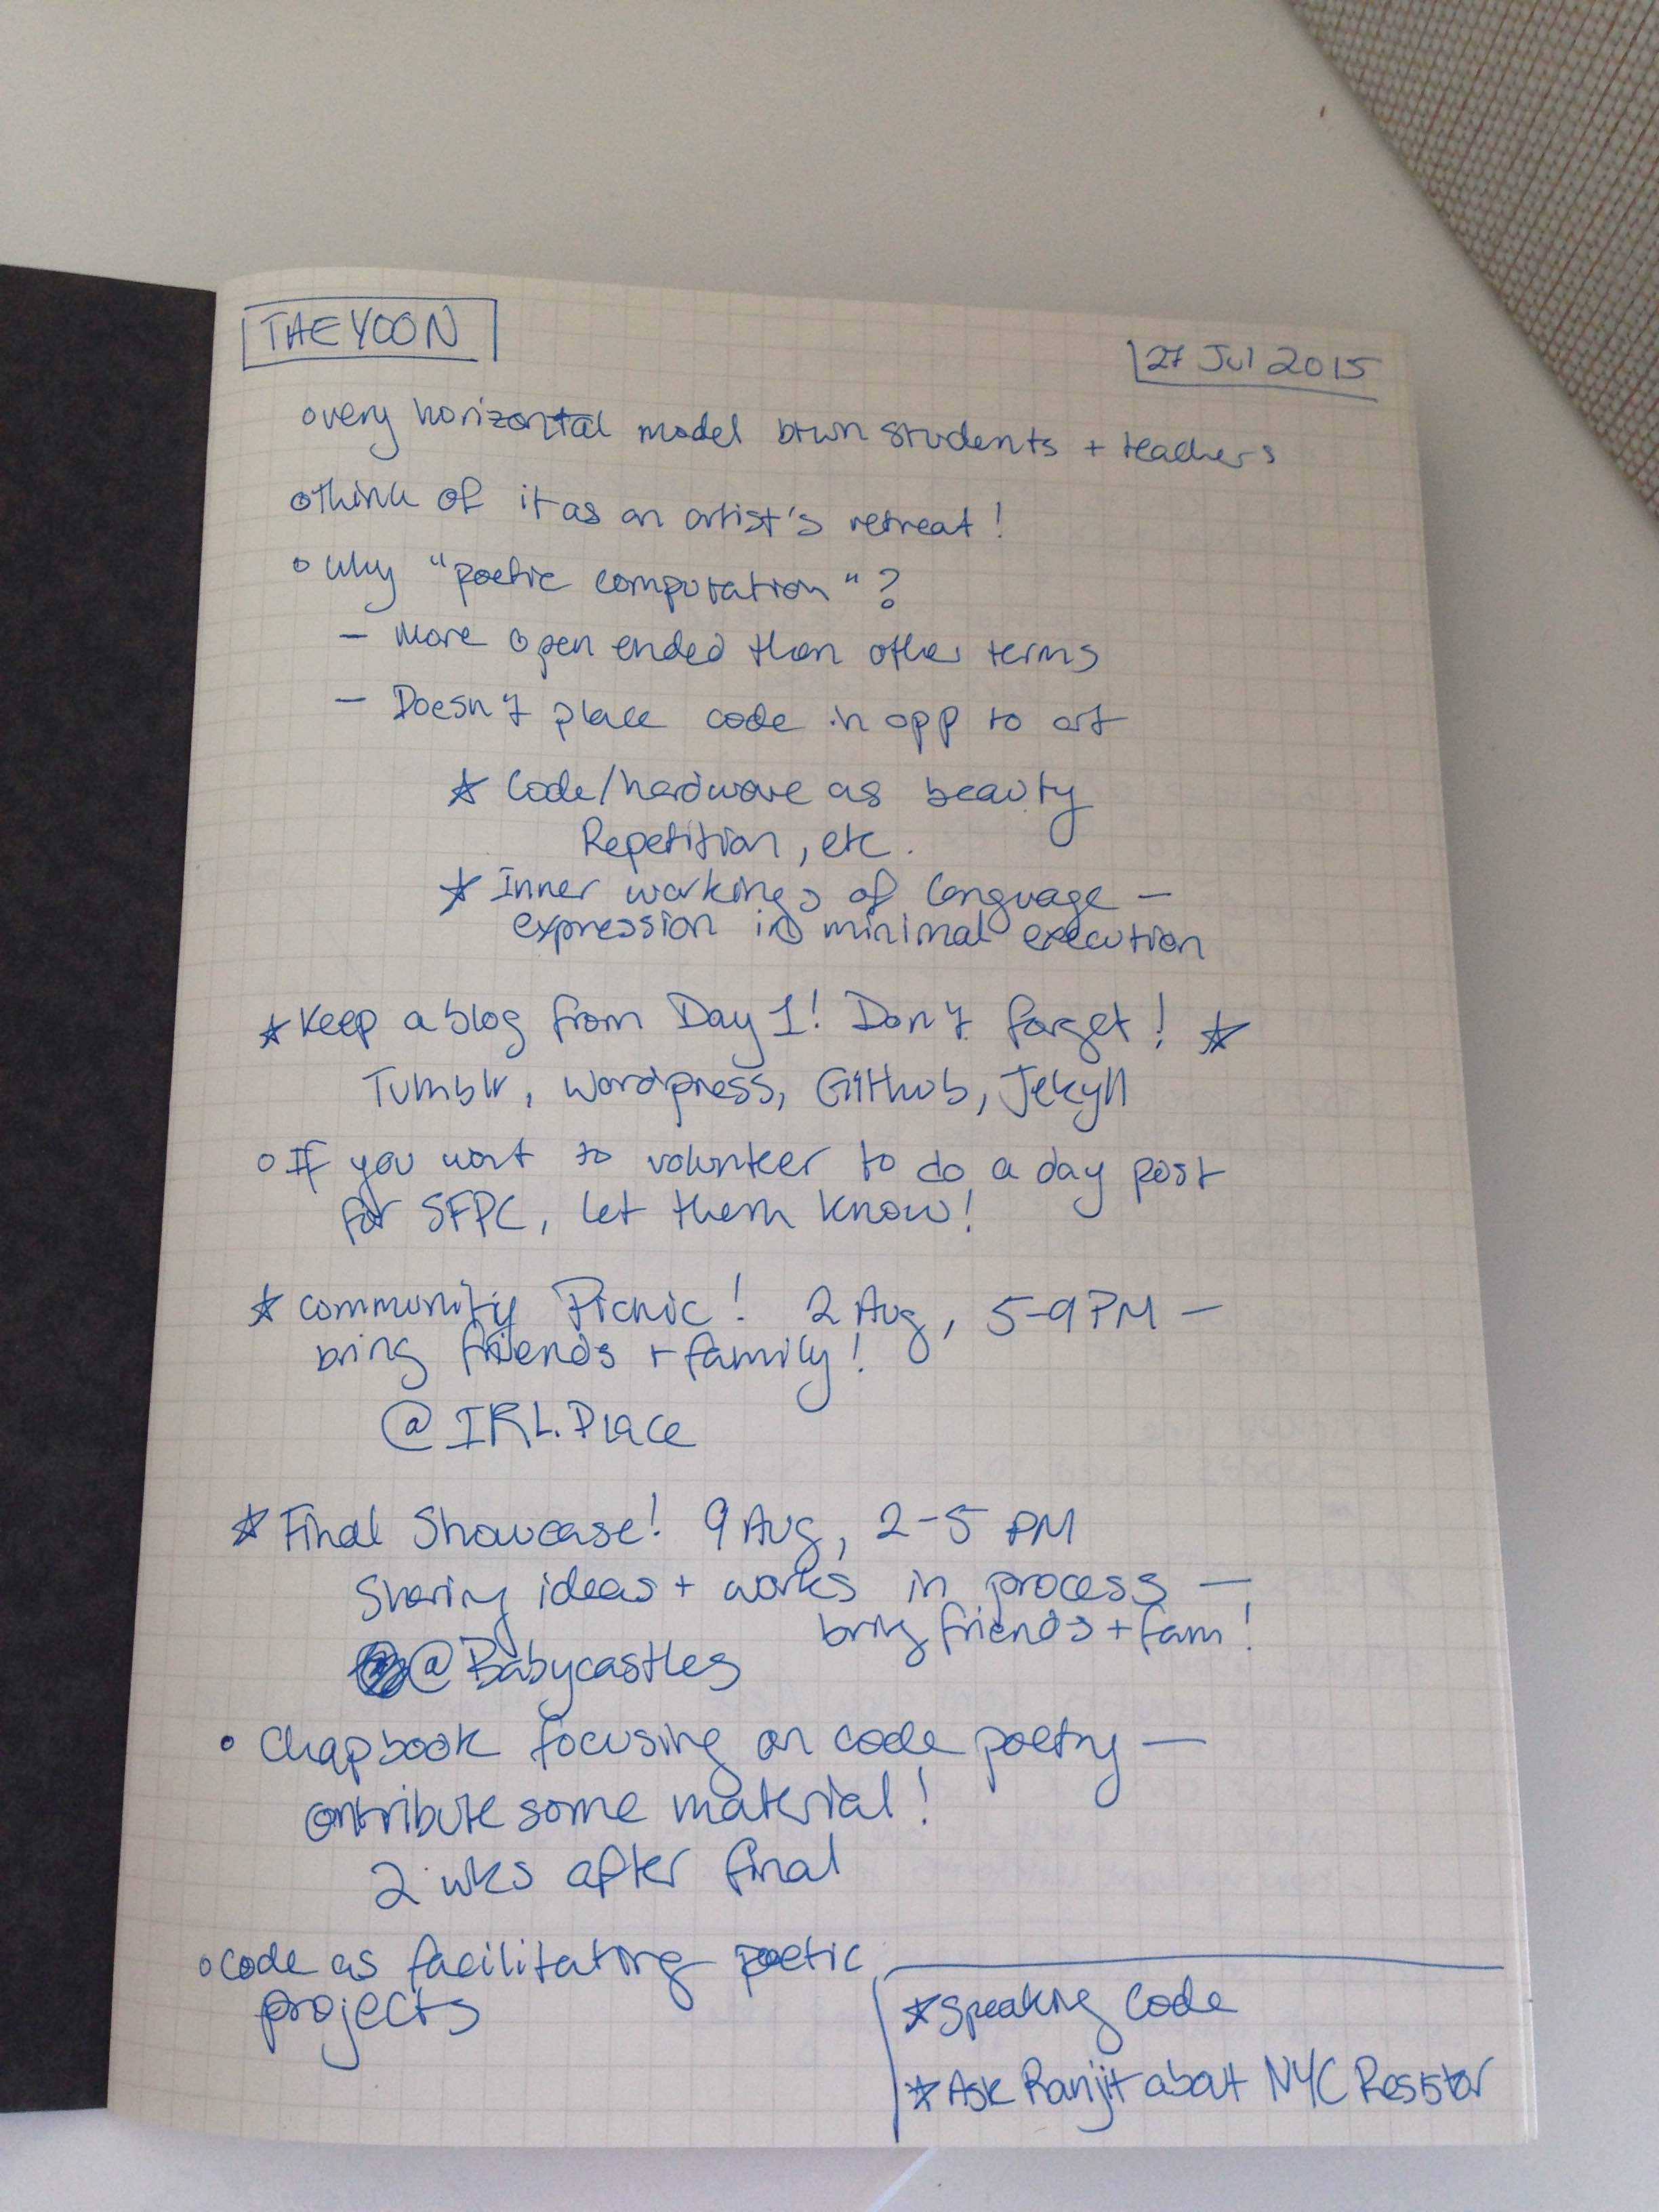 THEYOON
27 Jul 2015
○ very horizontal model btwn students + teachers
○ think of it as an artist's retreat!
○ Why "poetic computation"?
– More open ended than other terms
– Doesn't place code in opp to art
☆ Code/hardware as beauty
Repetition, etc.
☆ Inner workings of language –
expression in minimal execution
☆ Keep a blog from Day 1! Don't forget! ☆
Tumblr, Wordpress, GitHub, Jekyll
○ If you want to volunteer to do a day post
for SFPC, let them know!
☆ Community Picnic! 2 Aug, 5-9PM –
bring friends + family!
@ IRL.Place
☆ Final Showcase! 9 Aug, 2-5 PM
Sharing ideas + works in process –
bring friends + fam!
@Babycastles
• Chapbook focusing on code poetry –
contribute some material!
2 wks after final
○ code as facilitating poetic
projects
☆ Speaking Code
☆ Ask Ranjit about NYC Resistor